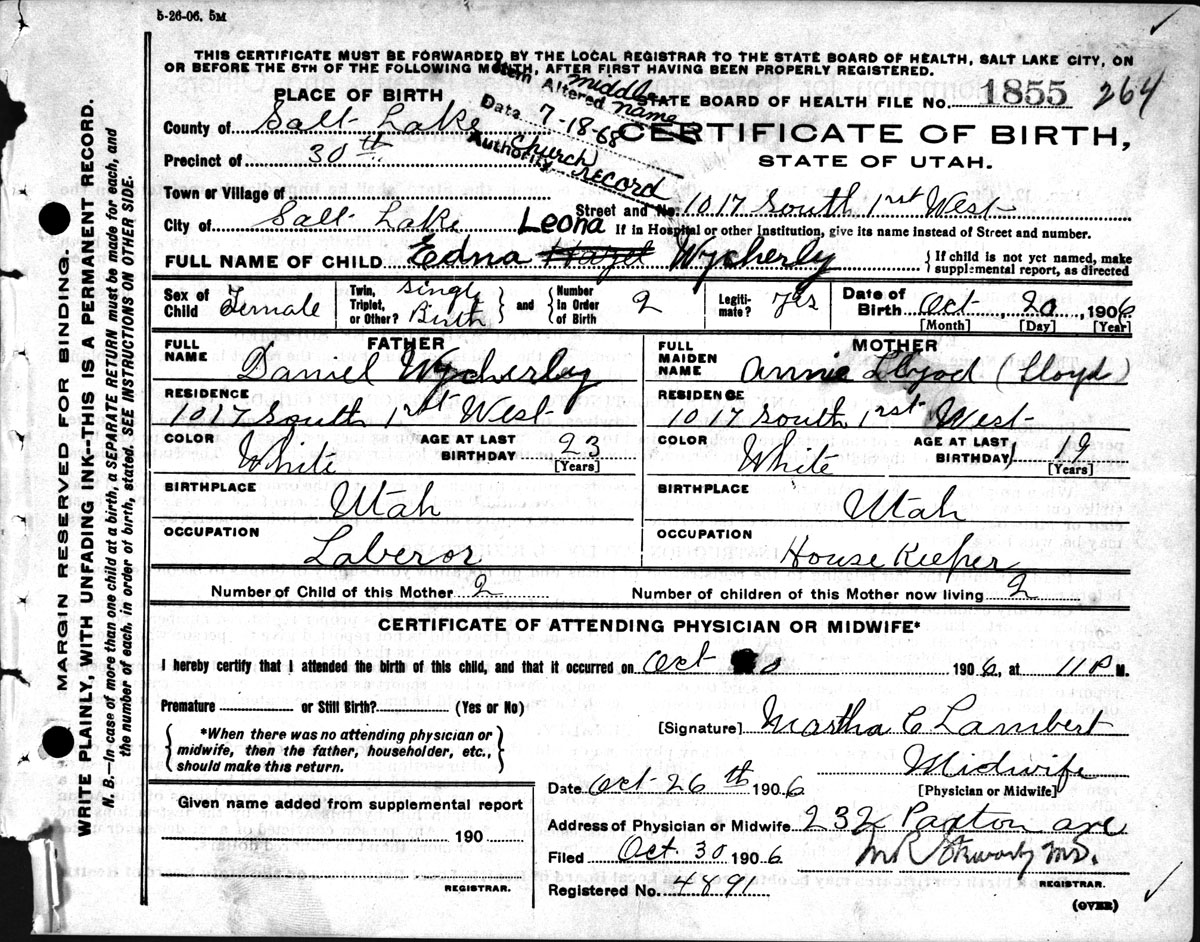 5-26-06. 5M
THIS CERTIFICATE MUST BE FORWARDED BY THE LOCAL REGISTRAR TO THE STATE BOARD OF HEALTH, SALT LAKE CITY, ON
OR BEFORE THE 5TH OF THE FOLLOWING MONTH, AFTER FIRST HAVING BEEN PROPERLY REGISTERED.
Item Altered middle name
Date 7-18-68
Authority Church record
PLACE OF BIRTH
STATE BOARD OF HEALTH FILE No. 1855 264
County of Salt Lake
CERTIFICATE OF BIRTH,
STATE OF UTAH.
Precinct of 30th
Town or Village of
Street and No. 1017 South 1st West
City of Salt Lake
If in Hospital or other Institution, give its name instead of Street and number.
Leona
FULL NAME OF CHILD Edna Hazel Wycherly
If child is not yet named, make
supplemental report, as directed
Sex of Child Female
Twin, Triplet, or Other? Single Birth
and Number In Order of Birth 2
Legiti-mate? Yes
Date of Birth Oct 20, 1906
[Month] [Day] [Year]
FATHER
FULL NAME Daniel Wycherley
RESIDENCE
1017 South 1st West
COLOR White
AGE AT LAST BIRTHDAY 23
[Years]
BIRTHPLACE
Utah
OCCUPATION
Laberor
MOTHER
FULL MAIDEN NAME Annie Llyod (Lloyd)
RESIDENCE
1017 South 1st West
COLOR White
AGE AT LAST BIRTHDAY 19
[Years]
BIRTHPLACE
Utah
OCCUPATION
House Keeper
Number of Child of this Mother 2
Number of children of this Mother now living 2
CERTIFICATE OF ATTENDING PHYSICIAN OR MIDWIFE*
I hereby certify that I attended the birth of this child, and that it occurred on Oct 1906, at 11 P M.
Premature or Still Birth? (Yes or No)
*When there was no attending physician or
midwife, then the father, householder, etc.,
should make this return.
[Signature] Martha C Lambert
Midwife
[Physician or Midwife]
Date Oct 26th 1906
Address of Physician or Midwife 232 Paxton ave
Filed Oct. 30 1906
M.D.
REGISTRAR.
Registered No. 4891
(OVER)
Given name added from supplemental report
190
REGISTRAR.
MARGIN RESERVED FOR BINDING.
WRITE PLAINLY, WITH UNFADING INK--THIS IS A PERMANENT RECORD.
N. B.—In case of more than one child at a birth, a SEPARATE RETURN must be made for each, and
the number of each, in order of birth, stated. SEE INSTRUCTIONS ON OTHER SIDE.